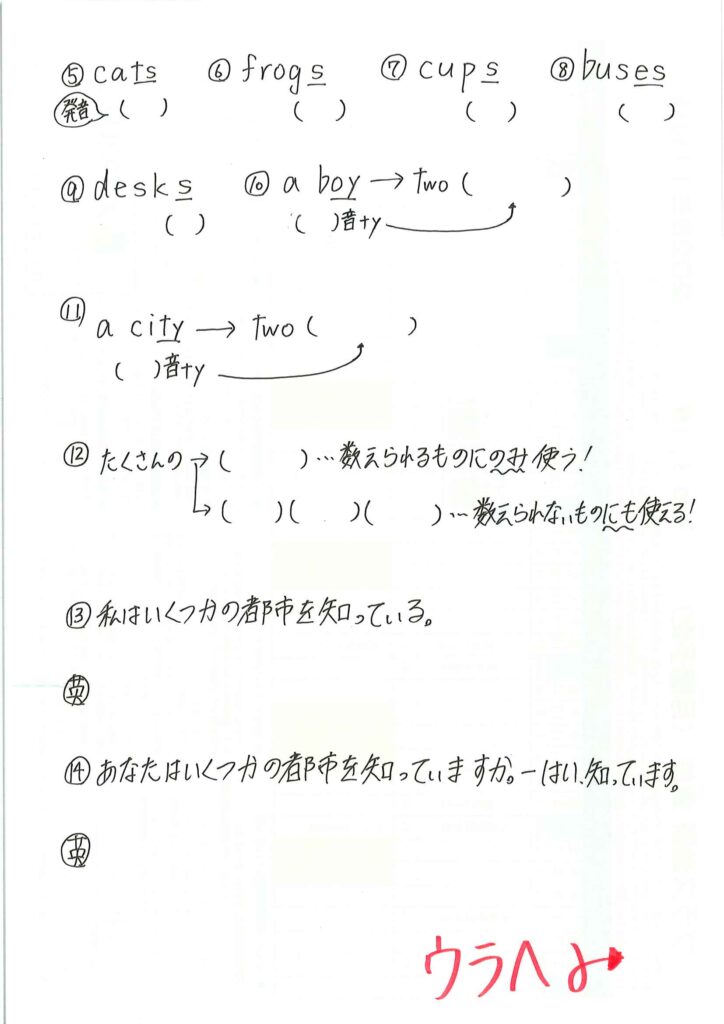 ⑤ cats ⑥ frogs ⑦ cups ⑧ buses
発音 ( ) ( ) ( ) ( )
⑨ desks ⑩ a boy → two ( )
( ) ( )音+y
⑪ a city → two ( )
( )音+y
⑫ たくさんの → ( ) …数えられるものにのみ使う!
→ ( )( )( ) …数えられないものにも使える!
⑬ 私はいくつかの都市を知っている。
英
⑭ あなたはいくつかの都市を知っていますか。ーはい、知っています。
英
ウラへ